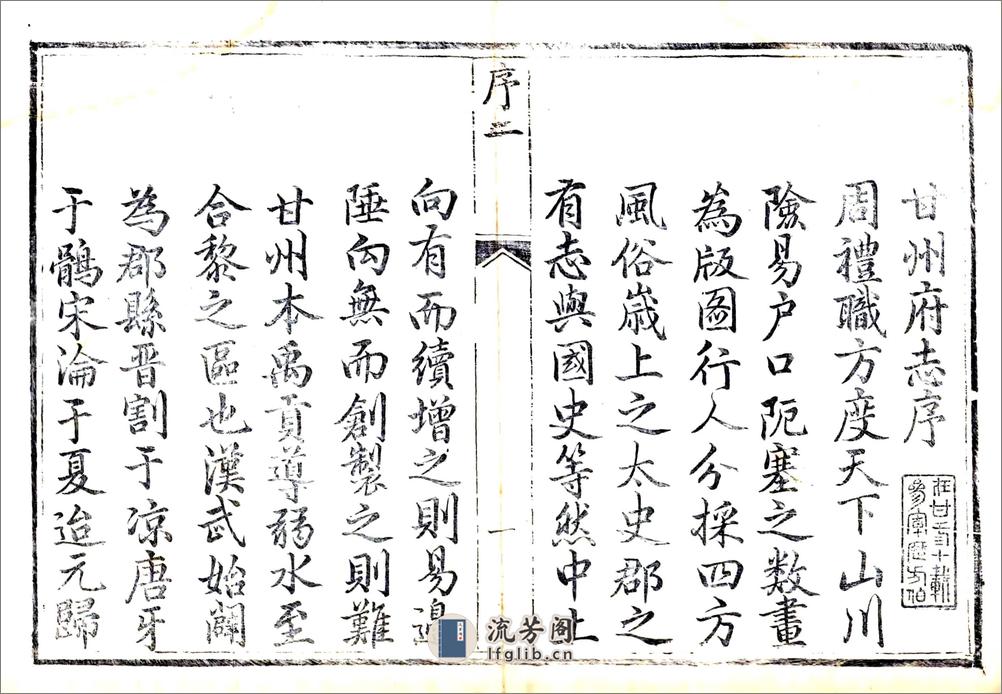 甘州府志序
周禮職方度天下山川
險易户口阨塞之数畫
為版圖行人分採四方
風俗嵗上之太史郡之
有志與國史等然中土
序二
一
向有而續增之則易邊
陲向無而創製之則難
甘州本禹貢導弱水至
合黎之區也漢武始闢
為郡縣晋割于凉唐牙
于鶻宋淪于夏迨元歸
流芳阁
lfglib.cn